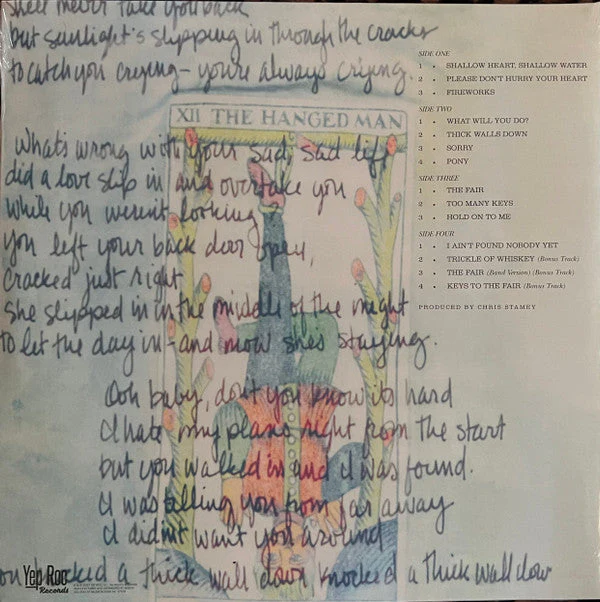 she'll never take you back
but sunlight's slipping in through the cracks
to catch you crying - you're always crying.
XII THE HANGED MAN
What's wrong with your sad, sad life
did a love slip in and overtake you
while you weren't looking
You left your back door open,
cracked just right
She slipped in in the middle of the night
to let the day in - and now she's staying.
Ooh baby, don't you know its hard
I hate my plans right from the start
but you walked in and I was found.
I was telling you from far away
I didn't want you around
you knocked a thick wall down, knocked a thick wall dow
SIDE ONE
1 • SHALLOW HEART, SHALLOW WATER
2 • PLEASE DON'T HURRY YOUR HEART
3 • FIREWORKS
SIDE TWO
1 • WHAT WILL YOU DO?
2 • THICK WALLS DOWN
3 • SORRY
4 • PONY
SIDE THREE
1 • THE FAIR
2 • TOO MANY KEYS
3 • HOLD ON TO ME
SIDE FOUR
1 • I AIN'T FOUND NOBODY YET
2 • TRICKLE OF WHISKEY (Bonus Track)
3 • THE FAIR (Band Version) (Bonus Track)
4 • KEYS TO THE FAIR (Bonus Track)
PRODUCED BY CHRIS STAMEY
Yep Roc
Records